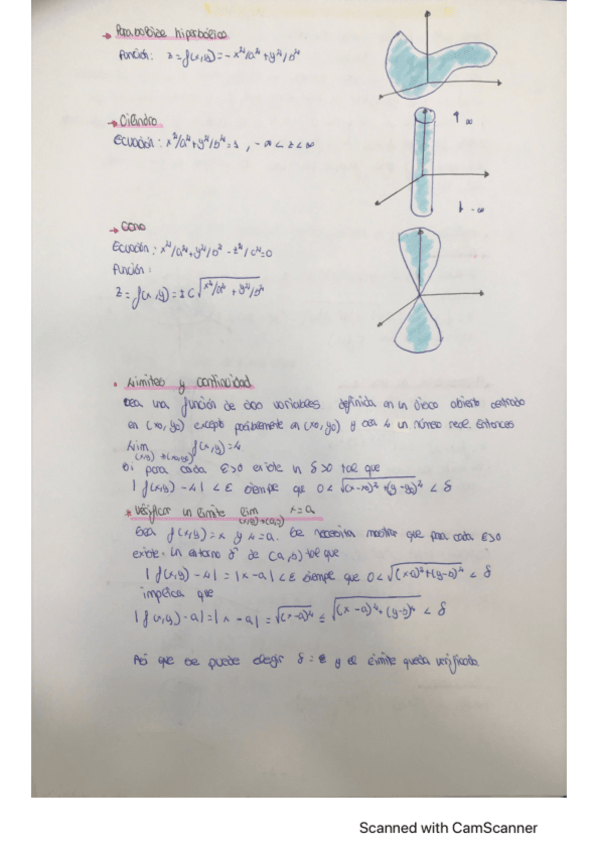 → Paraboloide hiperbólico
Función: z=f(x,y)=-x²/a²+y²/b²
→ Cilindro
Ecuación: x²/a²+y²/b²=1, -∞<z<∞
↑ ∞
↓ -∞
→ Cono
Ecuación: x²/a²+y²/b²-z²/c²=0
Función:
z=f(x,y)=±c√x²/a²+y²/b²
• Límites y continuidad
Sea una función de dos variables definida en un disco abierto centrado
en (x0,y0) excepto posiblemente en (x0,y0) y sea L un número real. Entonces
Lim f(x,y)=L
(x,y)→(x0,y0)
Si para cada ε>0 existe un δ>0 tal que
|f(x,y)-L|<ε siempre que 0<√(x-x0)²+(y-y0)²<δ
* Verificar un límite lim x=a
(x,y)→(a,b)
Sea f(x,y)=x y L=a. Se necesita mostrar que para cada ε>0
existe un entorno δ de (a,b) tal que
|f(x,y)-L|=|x-a|<ε siempre que 0<√(x-a)²+(y-b)²<δ
implica que
|f(x,y)-a|=|x-a|=√(x-a)²≤√(x-a)²+(y-b)²<δ
Así que se puede elegir δ=ε y el límite queda verificado
Scanned with CamScanner